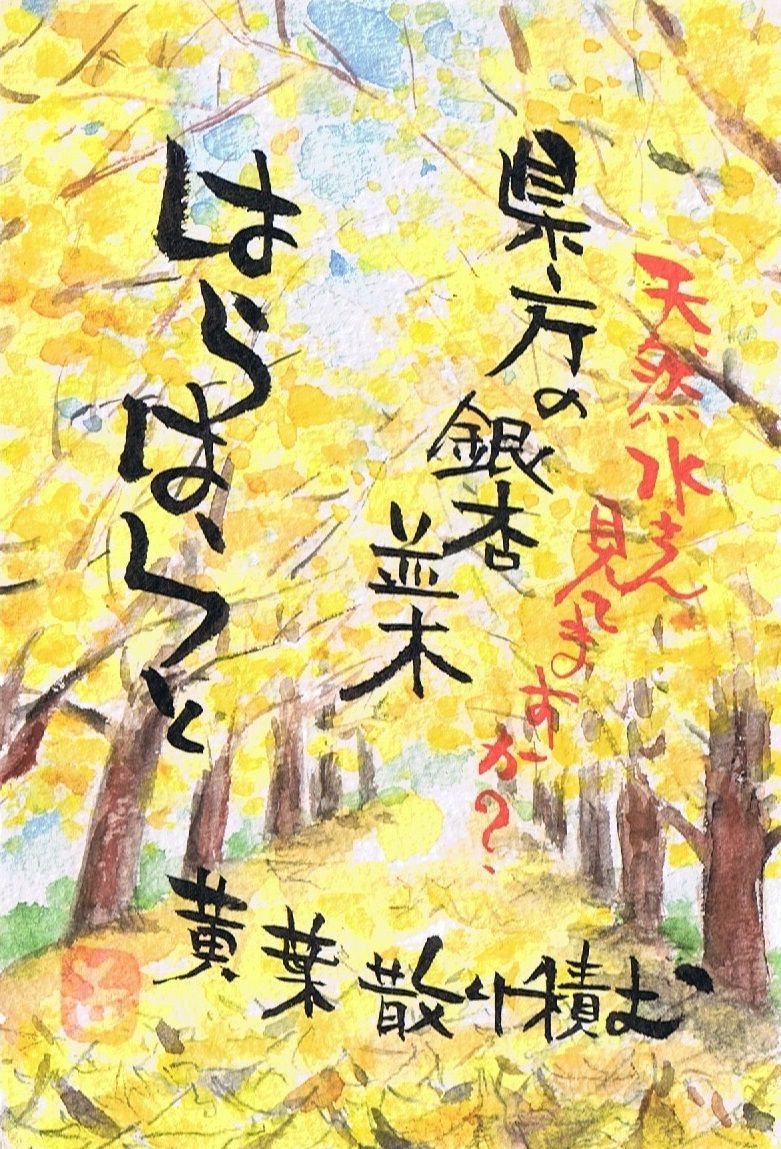 天然水さん
見てますか?
県庁の
銀杏
並木
はらはらと
黄葉散り積む